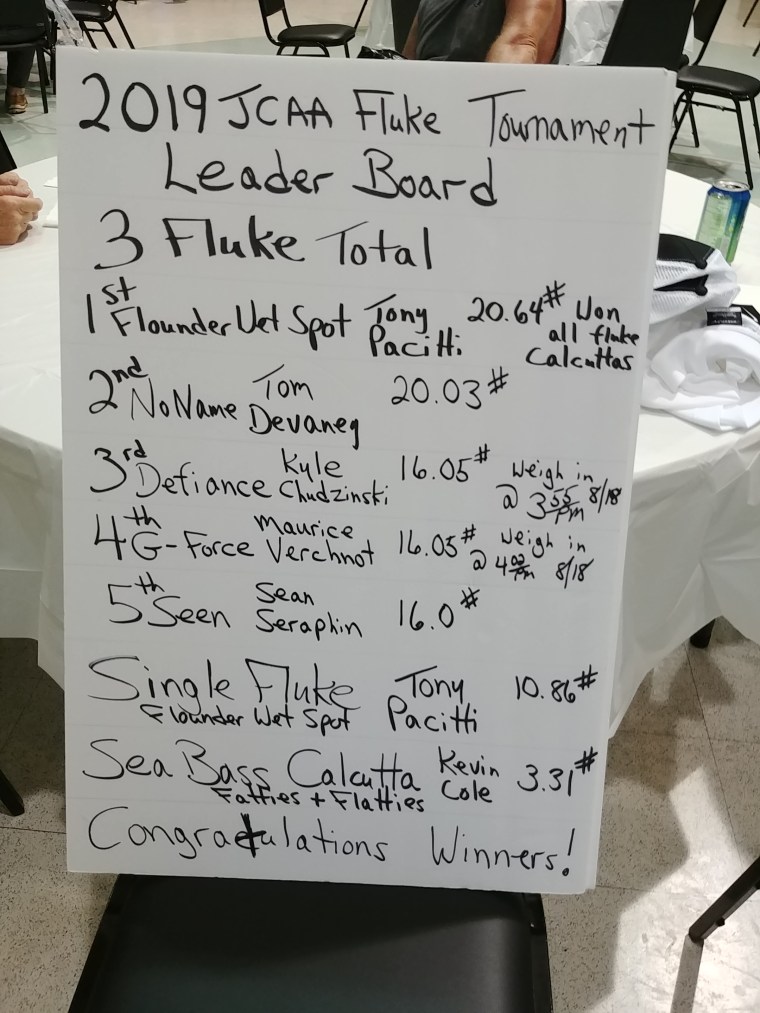 2019 JCAA Fluke Tournament
Leader Board
3 Fluke Total
1st Flounder Wet Spot Tony Pacitti 20.64# Won all fluke Calcuttas
2nd NoName Tom Devaney 20.03#
3rd Defiance Kyle Chudzinski 16.05# Weigh in @ 3:55 pm 8/18
4th G-Force Maurice Verchnot 16.05# Weigh in @ 4:02 pm 8/18
5th Seen Sean Seraphin 16.0#
Single Fluke Tony 10.86#
Flounder Wet Spot Pacitti
Sea Bass Calcutta Kevin 3.31#
Fatties + Flatties Cole
Congratulations Winners!